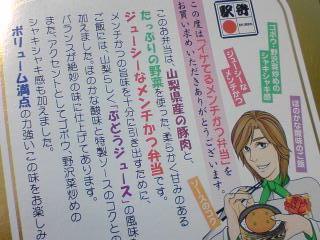 駅弁
この度は「イケてるメンチかつ弁当」を
お買い求めいただきありがとうございます。
このお弁当は、山梨県産の豚肉と、
たっぷりの野菜を使った、柔らかく甘みのある
ジューシーなメンチかつ弁当です。
メンチかつの旨味を十分に引き出すために、
ご飯には、山梨らしく「ぶどうジュース」の風味を
加えました。ほのかな酸味と特製ソースのコクとの
バランスは絶妙の味に仕上げてあります。
また、アクセントとしてゴボウ、野沢菜炒めの
シャキシャキ感も加えました。
ボリューム満点の力強いこの味をお楽しみ
ジューシーな
メンチかつ
ゴボウ・野沢菜炒めの
シャキシャキ感
ほのかな酸味のご飯
ソースのコク